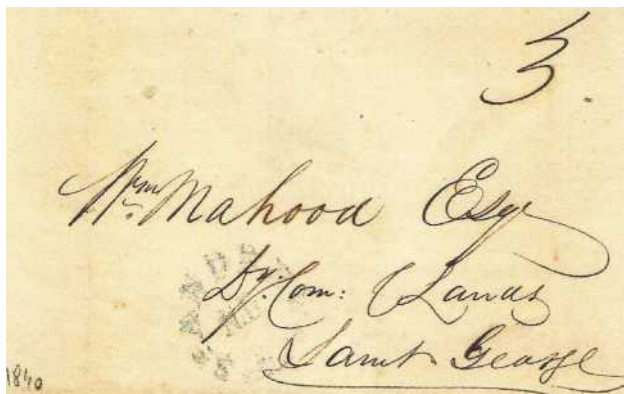 3
Wm Mahood Esqr
Dy: Com: Lands
Saint George
1840